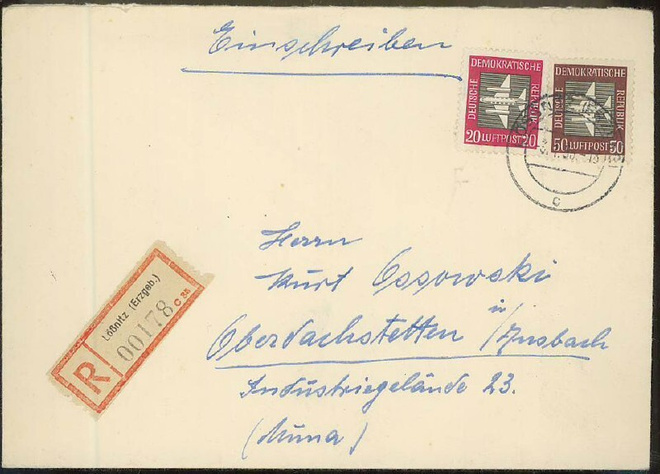 Einschreiben
DEUTSCHE DEMOKRATISCHE REPUBLIK
20 LUFTPOST 20
DEUTSCHE DEMOKRATISCHE REPUBLIK
50 LUFTPOST 50
c
Herrn
Kurt Ossowski
in
Oberdachstetten /Ansbach
Industriegelände 23.
(Muna)
R
Lößnitz (Erzgeb.)
00178 C 35